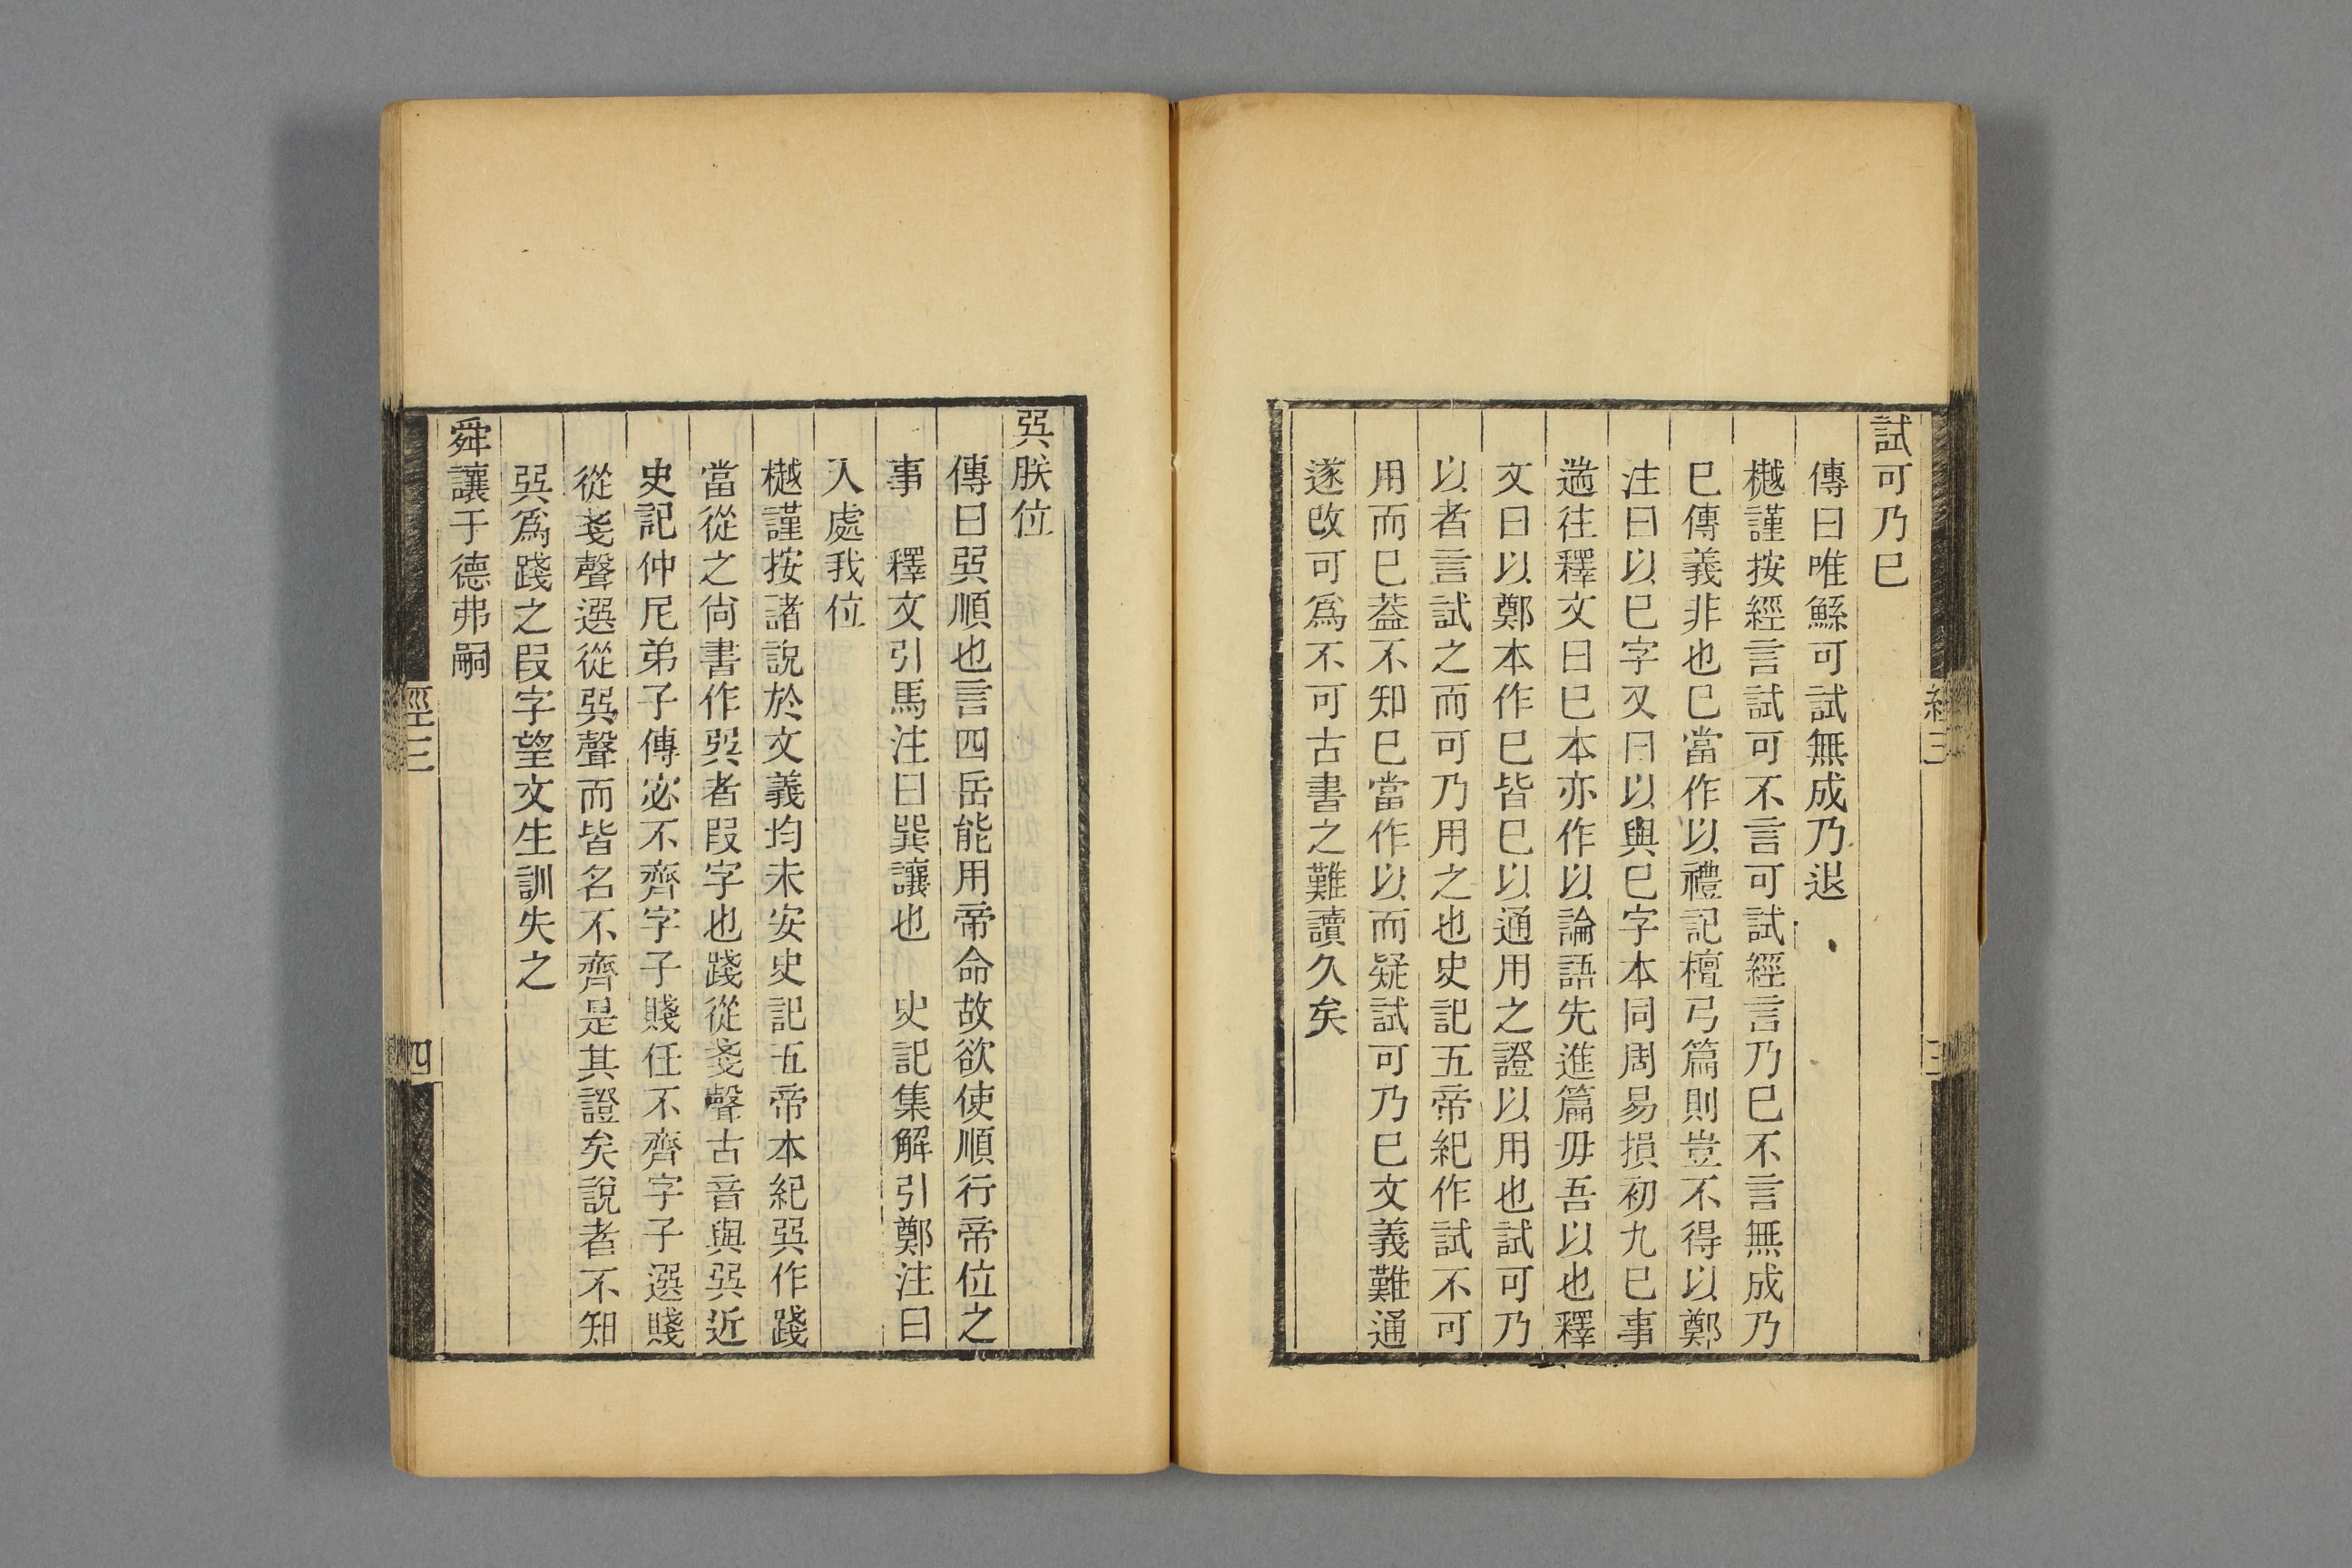 試可乃巳
傳曰唯鯀可試無成乃退
樾謹按經言試可不言可試經言乃巳不言無成乃
巳傳義非也巳當作以禮記檀弓篇則豈不得以鄭
注曰以巳字又曰以與巳字本同周易損初九巳事
遄往釋文曰巳本亦作以論語先進篇毋吾以也釋
文曰以鄭本作巳皆巳以通用之證以用也試可乃
以者言試之而可乃用之也史記五帝紀作試不可
用而巳葢不知巳當作以而疑試可乃巳文義難通
遂改可爲不可古書之難讀久矣
巽朕位
傳曰巽順也言四岳能用帝命故欲使順行帝位之
事　釋文引馬注曰巽讓也　史記集解引鄭注曰
入處我位
樾謹按諸說於文義均未安史記五帝本紀巽作踐
當從之尙書作巽者叚字也踐從戔聲古音與巽近
史記仲尼弟子傳宓不齊字子賤任不齊字子選賤
從戔聲選從巽聲而皆名不齊是其證矣說者不知
巽爲踐之叚字望文生訓失之
舜讓于德弗嗣
經三
四